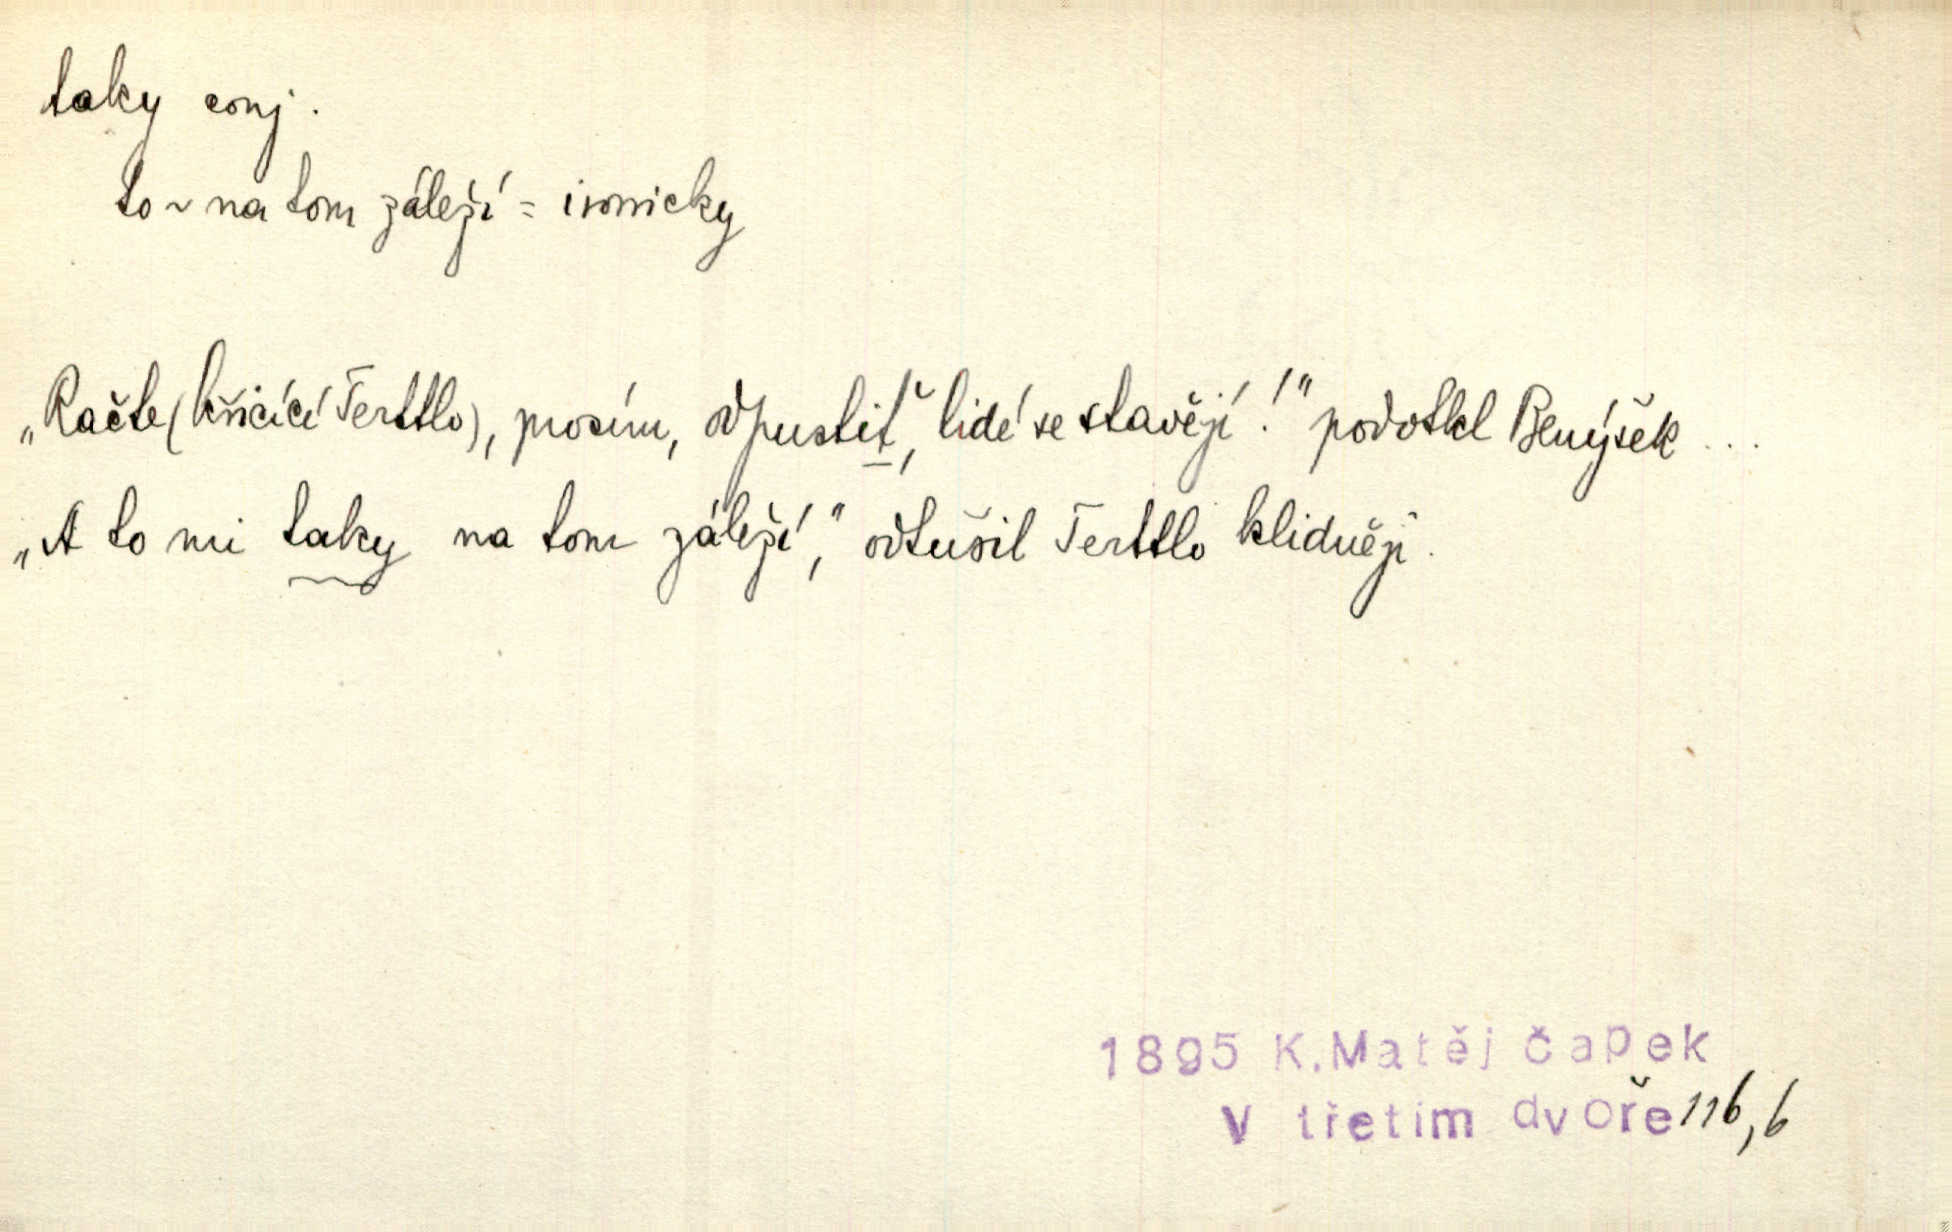 taky conj.
to ~ na tom záleží = ironicky
„Račte (křičící Terttlo), prosím, odpustiť, lidé se stavějí!" podotkl Benýšek ...
„A to mi taky na tom záleží," odtušil Terttlo klidněji.
1895 K.Matěj Čapek
V třetím dvoře 116,6